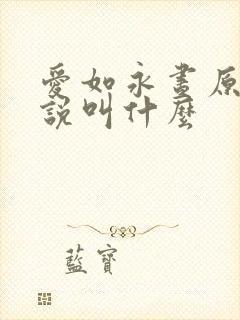 愛如永晝原
說叫什麼
藍寶